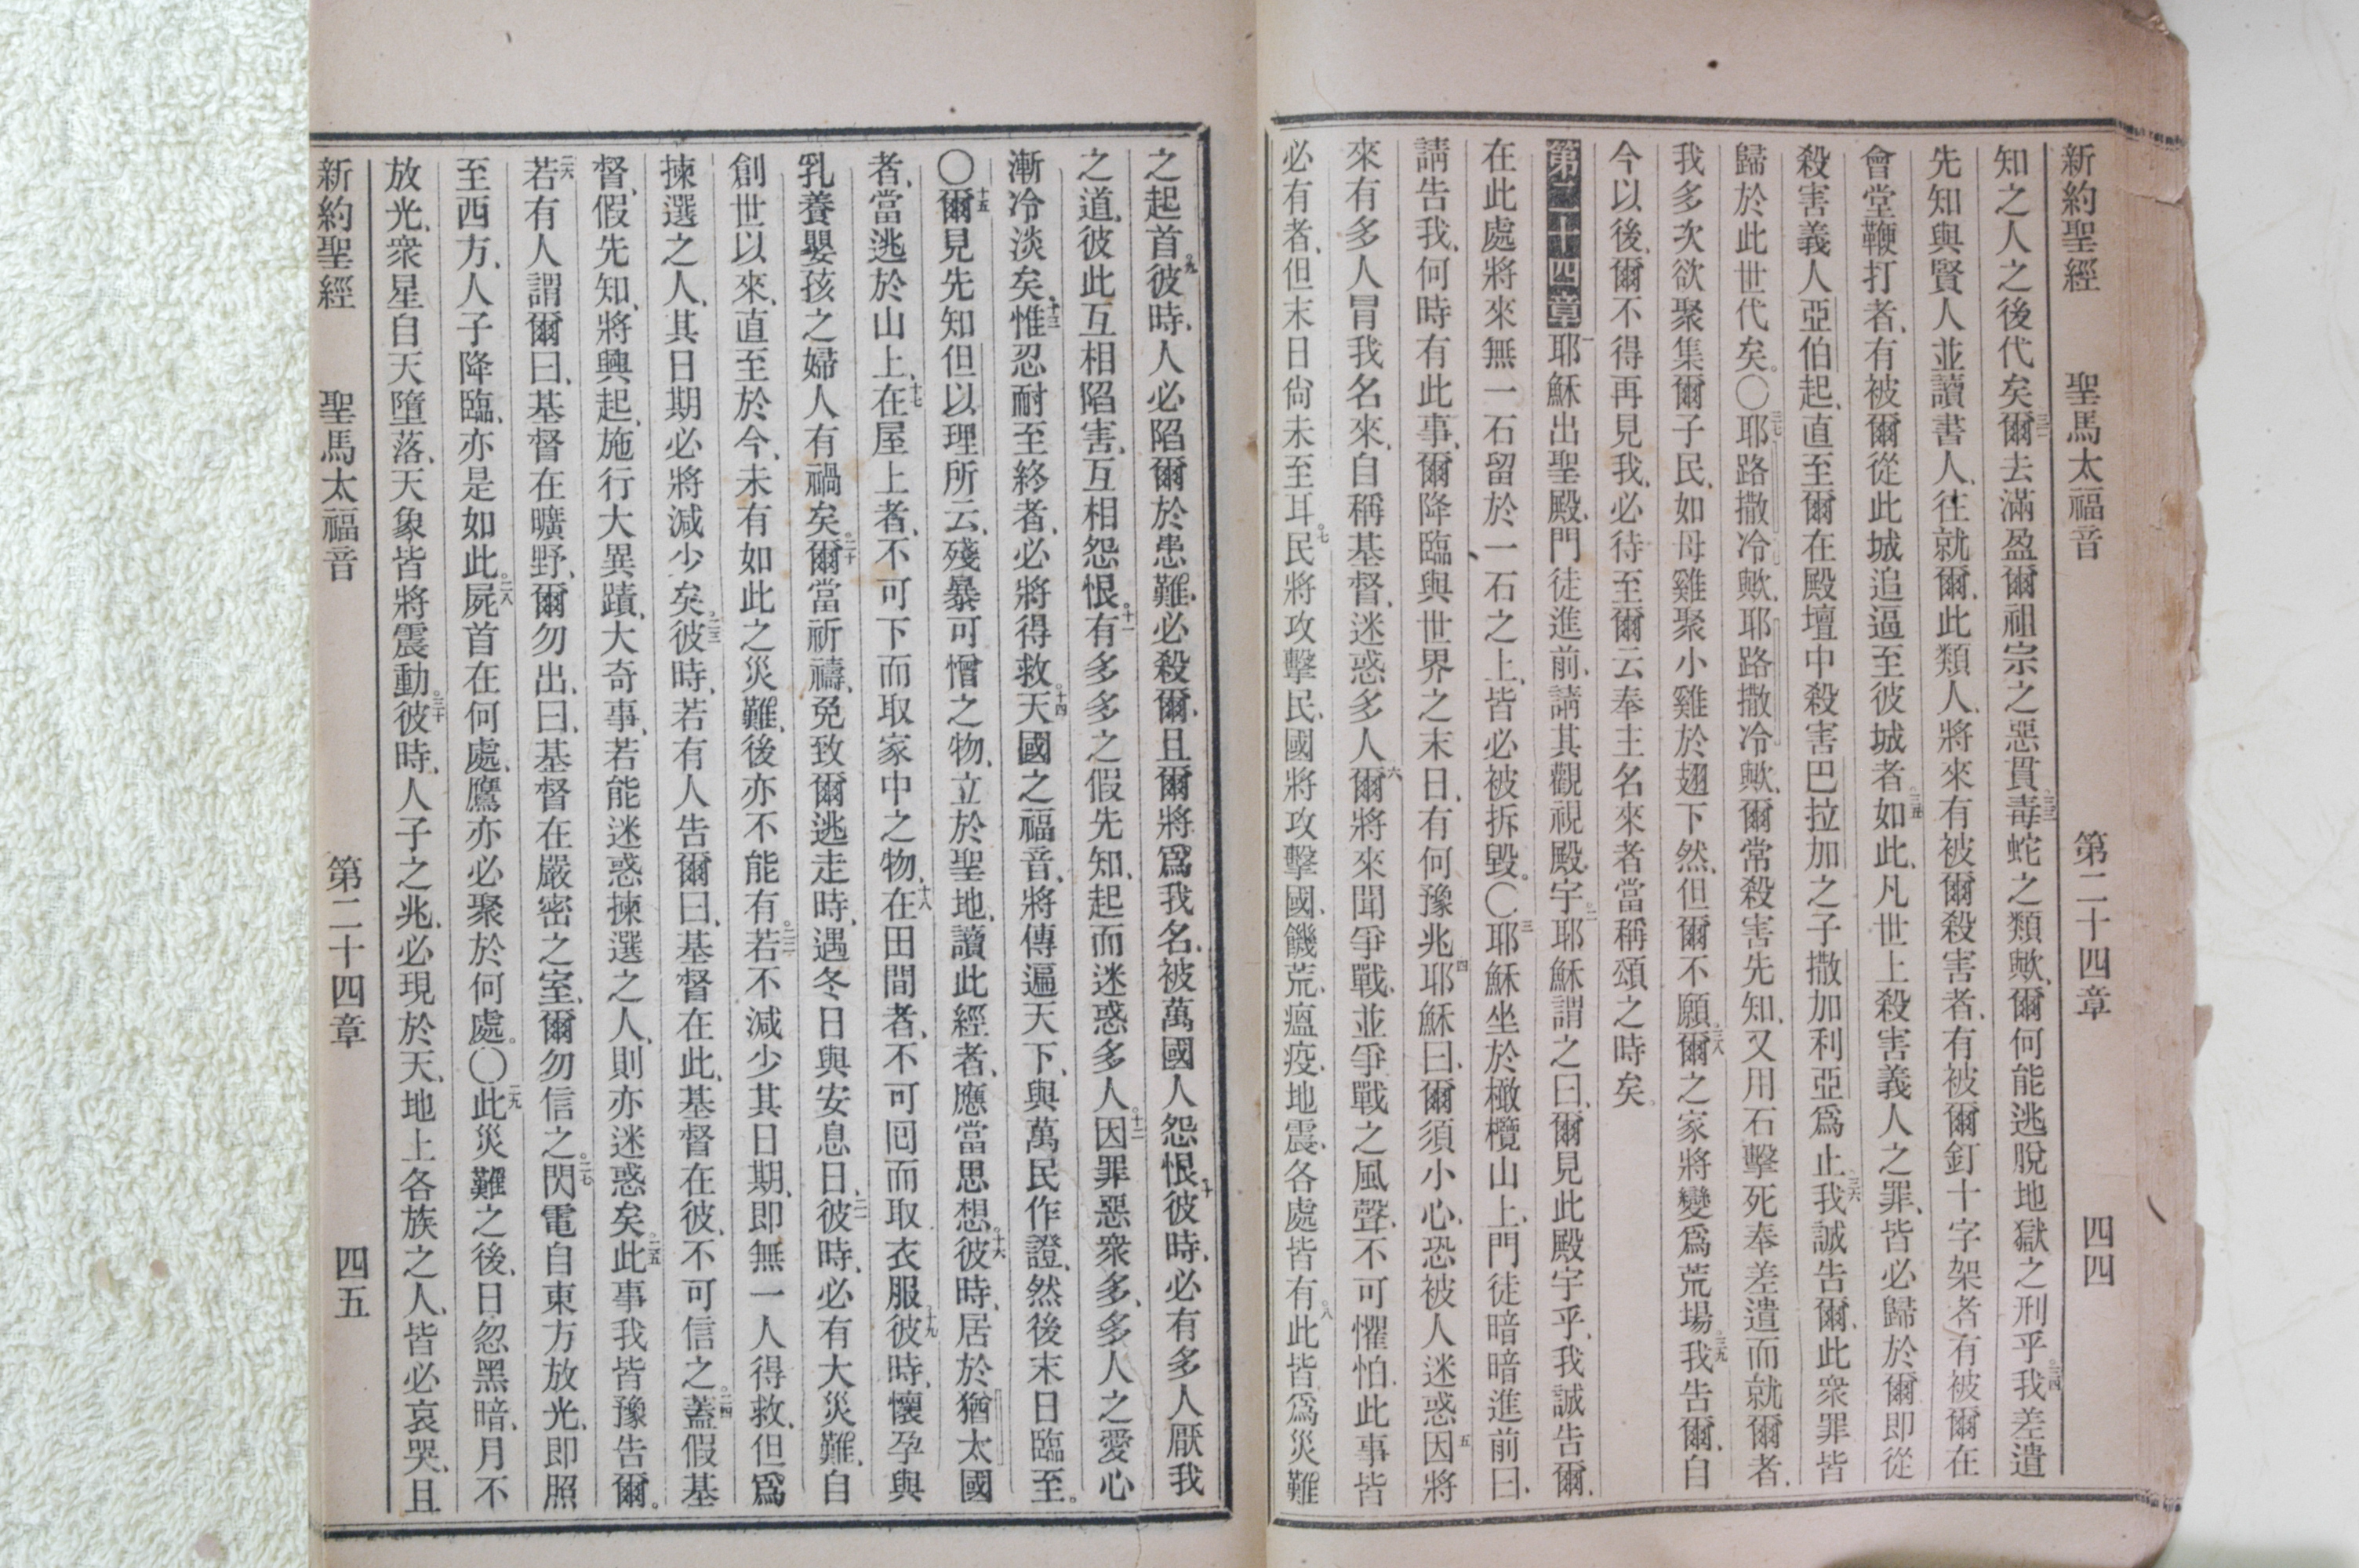 新約聖經 聖馬太福音 第二十四章 四四
知之人之後代矣三二爾去滿盈爾祖宗之惡貫三三毒蛇之類歟、爾何能逃脫地獄之刑乎。三四我差遣
先知與賢人並讀書人、往就爾、此類人、將來有被爾殺害者、有被爾釘十字架者有被爾在
會堂鞭打者、有被爾從此城追逼至彼城者。三五如此、凡世上殺害義人之罪、皆必歸於爾即從
殺害義人亞伯起、直至爾在殿壇中殺害巴拉加之子撒加利亞爲止三六我誠告爾、此衆罪皆
歸於此世代矣。〇三七耶路撒冷歟、耶路撒冷歟、爾常殺害先知、又用石擊死奉差遣而就爾者、
我多次欲聚集爾子民、如母雞聚小雞於翅下然、但爾不願。三八爾之家將變爲荒場。三九我告爾、自
今以後、爾不得再見我、必待至爾云奉主名來者當稱頌之時矣。
第二十四章 一耶穌出聖殿、門徒進前、請其觀視殿宇。二耶穌謂之曰、爾見此殿宇乎、我誠告爾、
在此處將來無一石留於一石之上、皆必被拆毀。〇三耶穌坐於橄欖山上、門徒暗暗進前曰、
請告我、何時有此事、爾降臨與世界之末日、有何豫兆四耶穌曰、爾須小心、恐被人迷惑五因將
來有多人冒我名來、自稱基督、迷惑多人六爾將來聞爭戰、並爭戰之風聲、不可懼怕、此事皆
必有者、但末日尙未至耳。七民將攻擊民、國將攻擊國、饑荒、瘟疫、地震、各處皆有。八此皆爲災難
之起首。九彼時、人必陷爾於患難、必殺爾、且爾將爲我名、被萬國人怨恨、十彼時、必有多人厭我
之道、彼此互相陷害、互相怨恨。十一有多多之假先知、起而迷惑多人。十二因罪惡衆多、多人之愛心
漸冷淡矣、十三惟忍耐至終者、必將得救。十四天國之福音、將傳遍天下、與萬民作證、然後末日臨至。
〇十五爾見先知但以理所云、殘暴可憎之物、立於聖地、讀此經者、應當思想。十六彼時、居於猶太國
者、當逃於山上、十七在屋上者、不可下而取家中之物、十八在田間者、不可囘而取衣服、十九彼時、懷孕與
乳養嬰孩之婦人有禍矣。二十爾當祈禱、免致爾逃走時、遇冬日與安息日、二一彼時、必有大災難、自
創世以來、直至於今、未有如此之災難、後亦不能有。二二若不減少其日期、即無一人得救、但爲
揀選之人、其日期必將減少矣。二三彼時、若有人告爾曰、基督在此、基督在彼、不可信之。二四蓋假基
督、假先知、將興起、施行大異蹟、大奇事、若能迷惑揀選之人、則亦迷惑矣。二五此事我皆豫告爾。
二六若有人謂爾曰、基督在曠野、爾勿出、曰、基督在嚴密之室、爾勿信之。二七閃電自東方放光、即照
至西方、人子降臨、亦是如此。二八屍首在何處、鷹亦必聚於何處。〇二九此災難之後、日忽黑暗、月不
放光、衆星自天墮落、天象皆將震動。三十彼時、人子之兆、必現於天、地上各族之人、皆必哀哭、且
新約聖經 聖馬太福音 第二十四章 四五